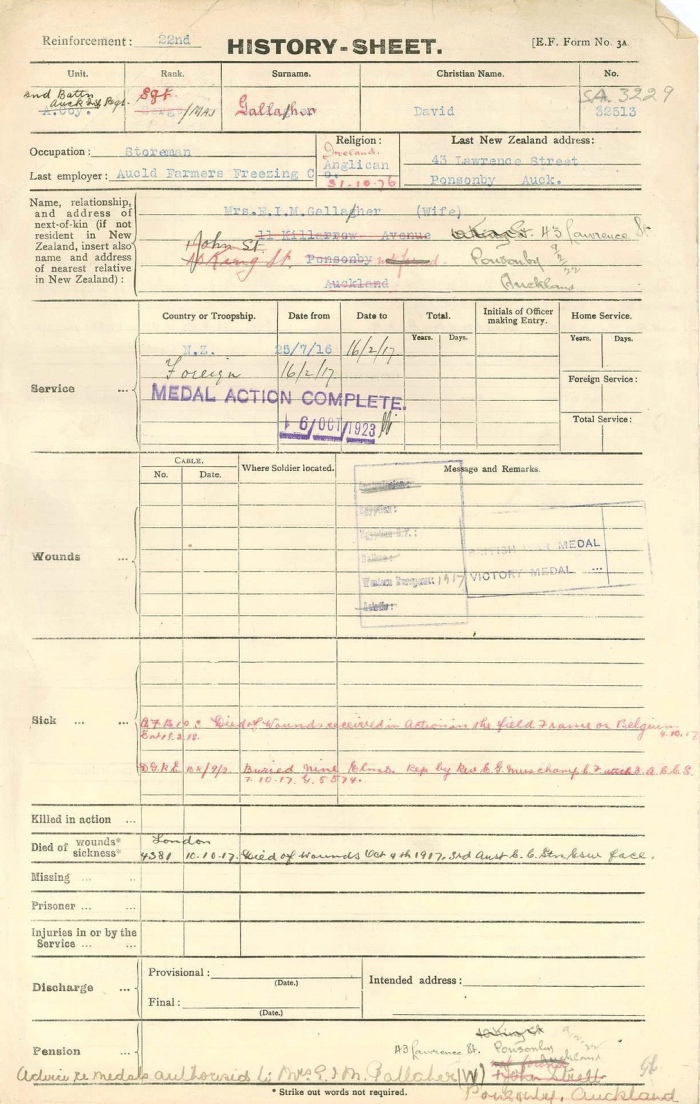 Reinforcement: 22nd
HISTORY-SHEET.
[E.F. Form No. 3A.
Unit. Rank. Surname. Christian Name. No.
2nd Battn Auck I Regt. Sgt. SA. 3229
A.Coy. /MAJ Gallaher David 32513
Occupation: Storeman
Last employer: Auckld Farmers Freezing Co.
Religion:
Ireland.
Anglican
31-10-76
Last New Zealand address:
43 Lawrence Street
Ponsonby Auck.
Name, relationship, and address of next-of-kin (if not resident in New Zealand, insert also name and address of nearest relative in New Zealand):
Mrs.E.I.M.Gallaher (Wife)
11 Killarrow Avenue 43 Lawrence St
John St. Ponsonby Ponsonby 9/2/22
King St.
Auckland Auckland
Service ...
Country or Troopship. Date from Date to Total. Initials of Officer making Entry. Home Service.
Years. Days. Years. Days.
N.Z. 25/7/16 16/2/17
Foreign 16/2/17
Foreign Service:
MEDAL ACTION COMPLETE.
6/OCT/1923
Total Service:
Wounds ...
CABLE.
No. Date. Where Soldier located. Message and Remarks.
Australasian:
Egyptian:
Egyptian E.F.:
Balkan:
Western European: 1917
Asiatic:
BRITISH WAR MEDAL
VICTORY MEDAL ...
Sick ... ...
Died of Wounds received in Action in the field France or Belgium 4.10.17
Buried Nine Elms. Rep by Rev E G Muschamp C.F. attch 3. A.C.C.S.
7.10.17. G. 5574.
Killed in action ...
Died of wounds* sickness*
London
4381 10.10.17. Died of Wounds Oct 4th 1917, 3rd Aust C.C. Stn Gsw face.
Missing ... ..
Prisoner ... ..
Injuries in or by the Service ... ...
Discharge ...
Provisional:
(Date.)
Final:
(Date.)
Intended address:
Pension ...
43 Lawrence St. Ponsonby
Auckland
John Street
Advice re medals authorised to Mrs E I M. Gallaher (W)
Ponsonby, Auckland
* Strike out words not required.